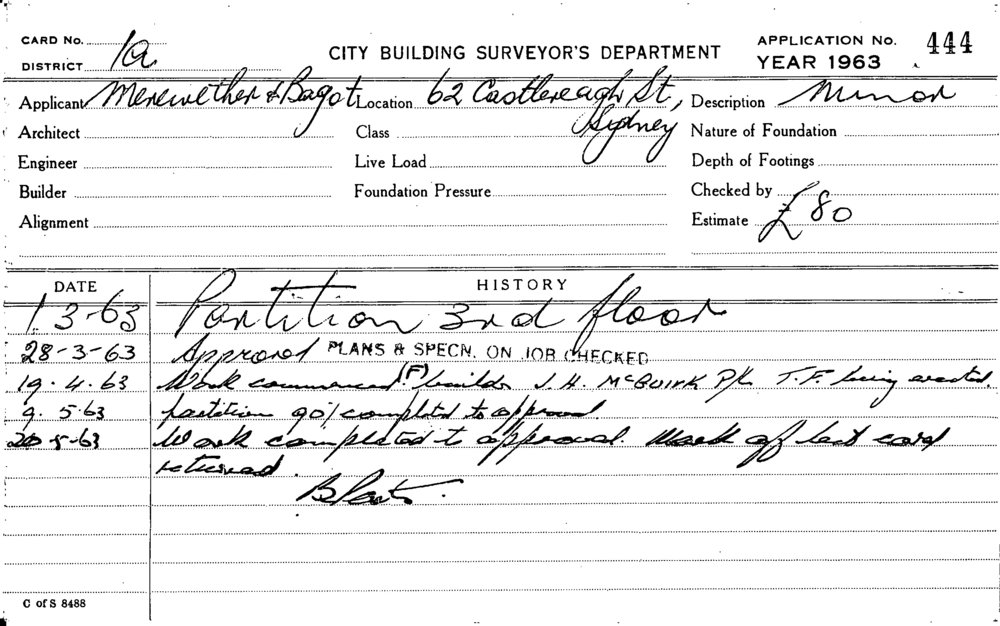 CARD No.
DISTRICT 1a
CITY BUILDING SURVEYOR'S DEPARTMENT
APPLICATION No. 444
YEAR 1963
Applicant Merewether & Bagot Location 62 Castlereagh St, Description Minor
Architect Class Sydney Nature of Foundation
Engineer Live Load Depth of Footings
Builder Foundation Pressure Checked by
Alignment Estimate £80
DATE HISTORY
1.3-63 Partition 3rd floor
28-3-63 Approved PLANS & SPECN. ON JOB CHECKED
19.4.63 Work commenced (F) builder J. H. McGuirk P/L T.F. being erected.
9.5.63 partition 90% completed to approval
20-5-63 Work completed to approval. card
returned.
C of S 8488